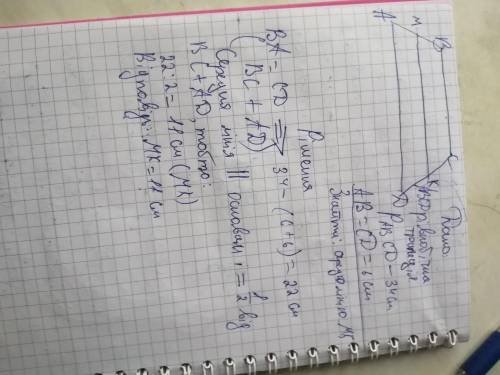 A
M
B
C
K
D
Дано:
трапеція
P ABCD = 34 см
AB = CD = 6 см
Знайти: середню MK
Рішення
BA = CD => 34 - (6+6) = 22 см
(BC + AD)
Середня лінія || основам і = 1/2 від
BC + AD, тобто:
22:2 = 11 см (MK)
Відповідь: MK = 11 см